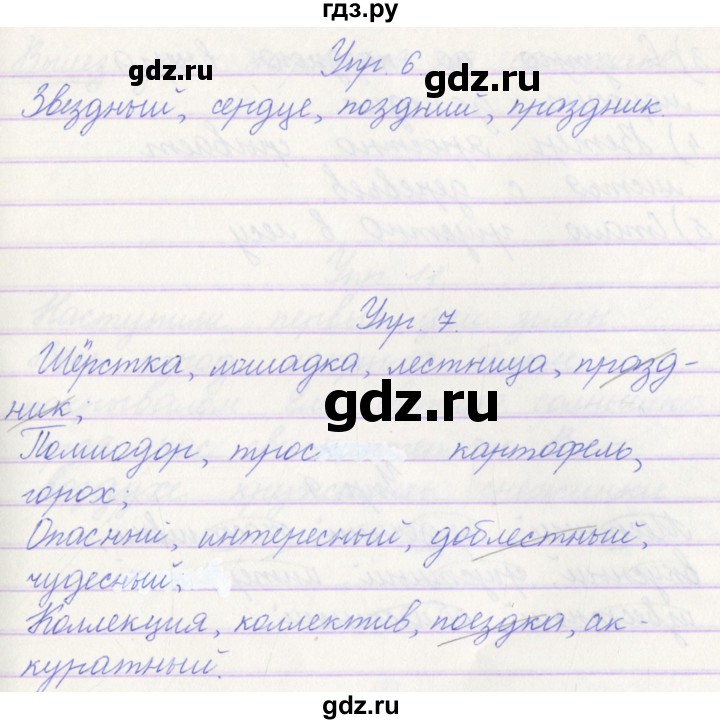 гдз.ру
Упр. 6
gdz.ru gdz.ru
Звездный, сердце, поздний, праздник.
Упр. 7.
Шёрстка, лошадка, лестница, празд-
ник;
gdz.ru
Помиодор, трос картофель,
горох;
Опасный, интересный, доблестный,
чудесный,
Коллекция, коллектив, поездка, ак-
куратный.
gdz.ru